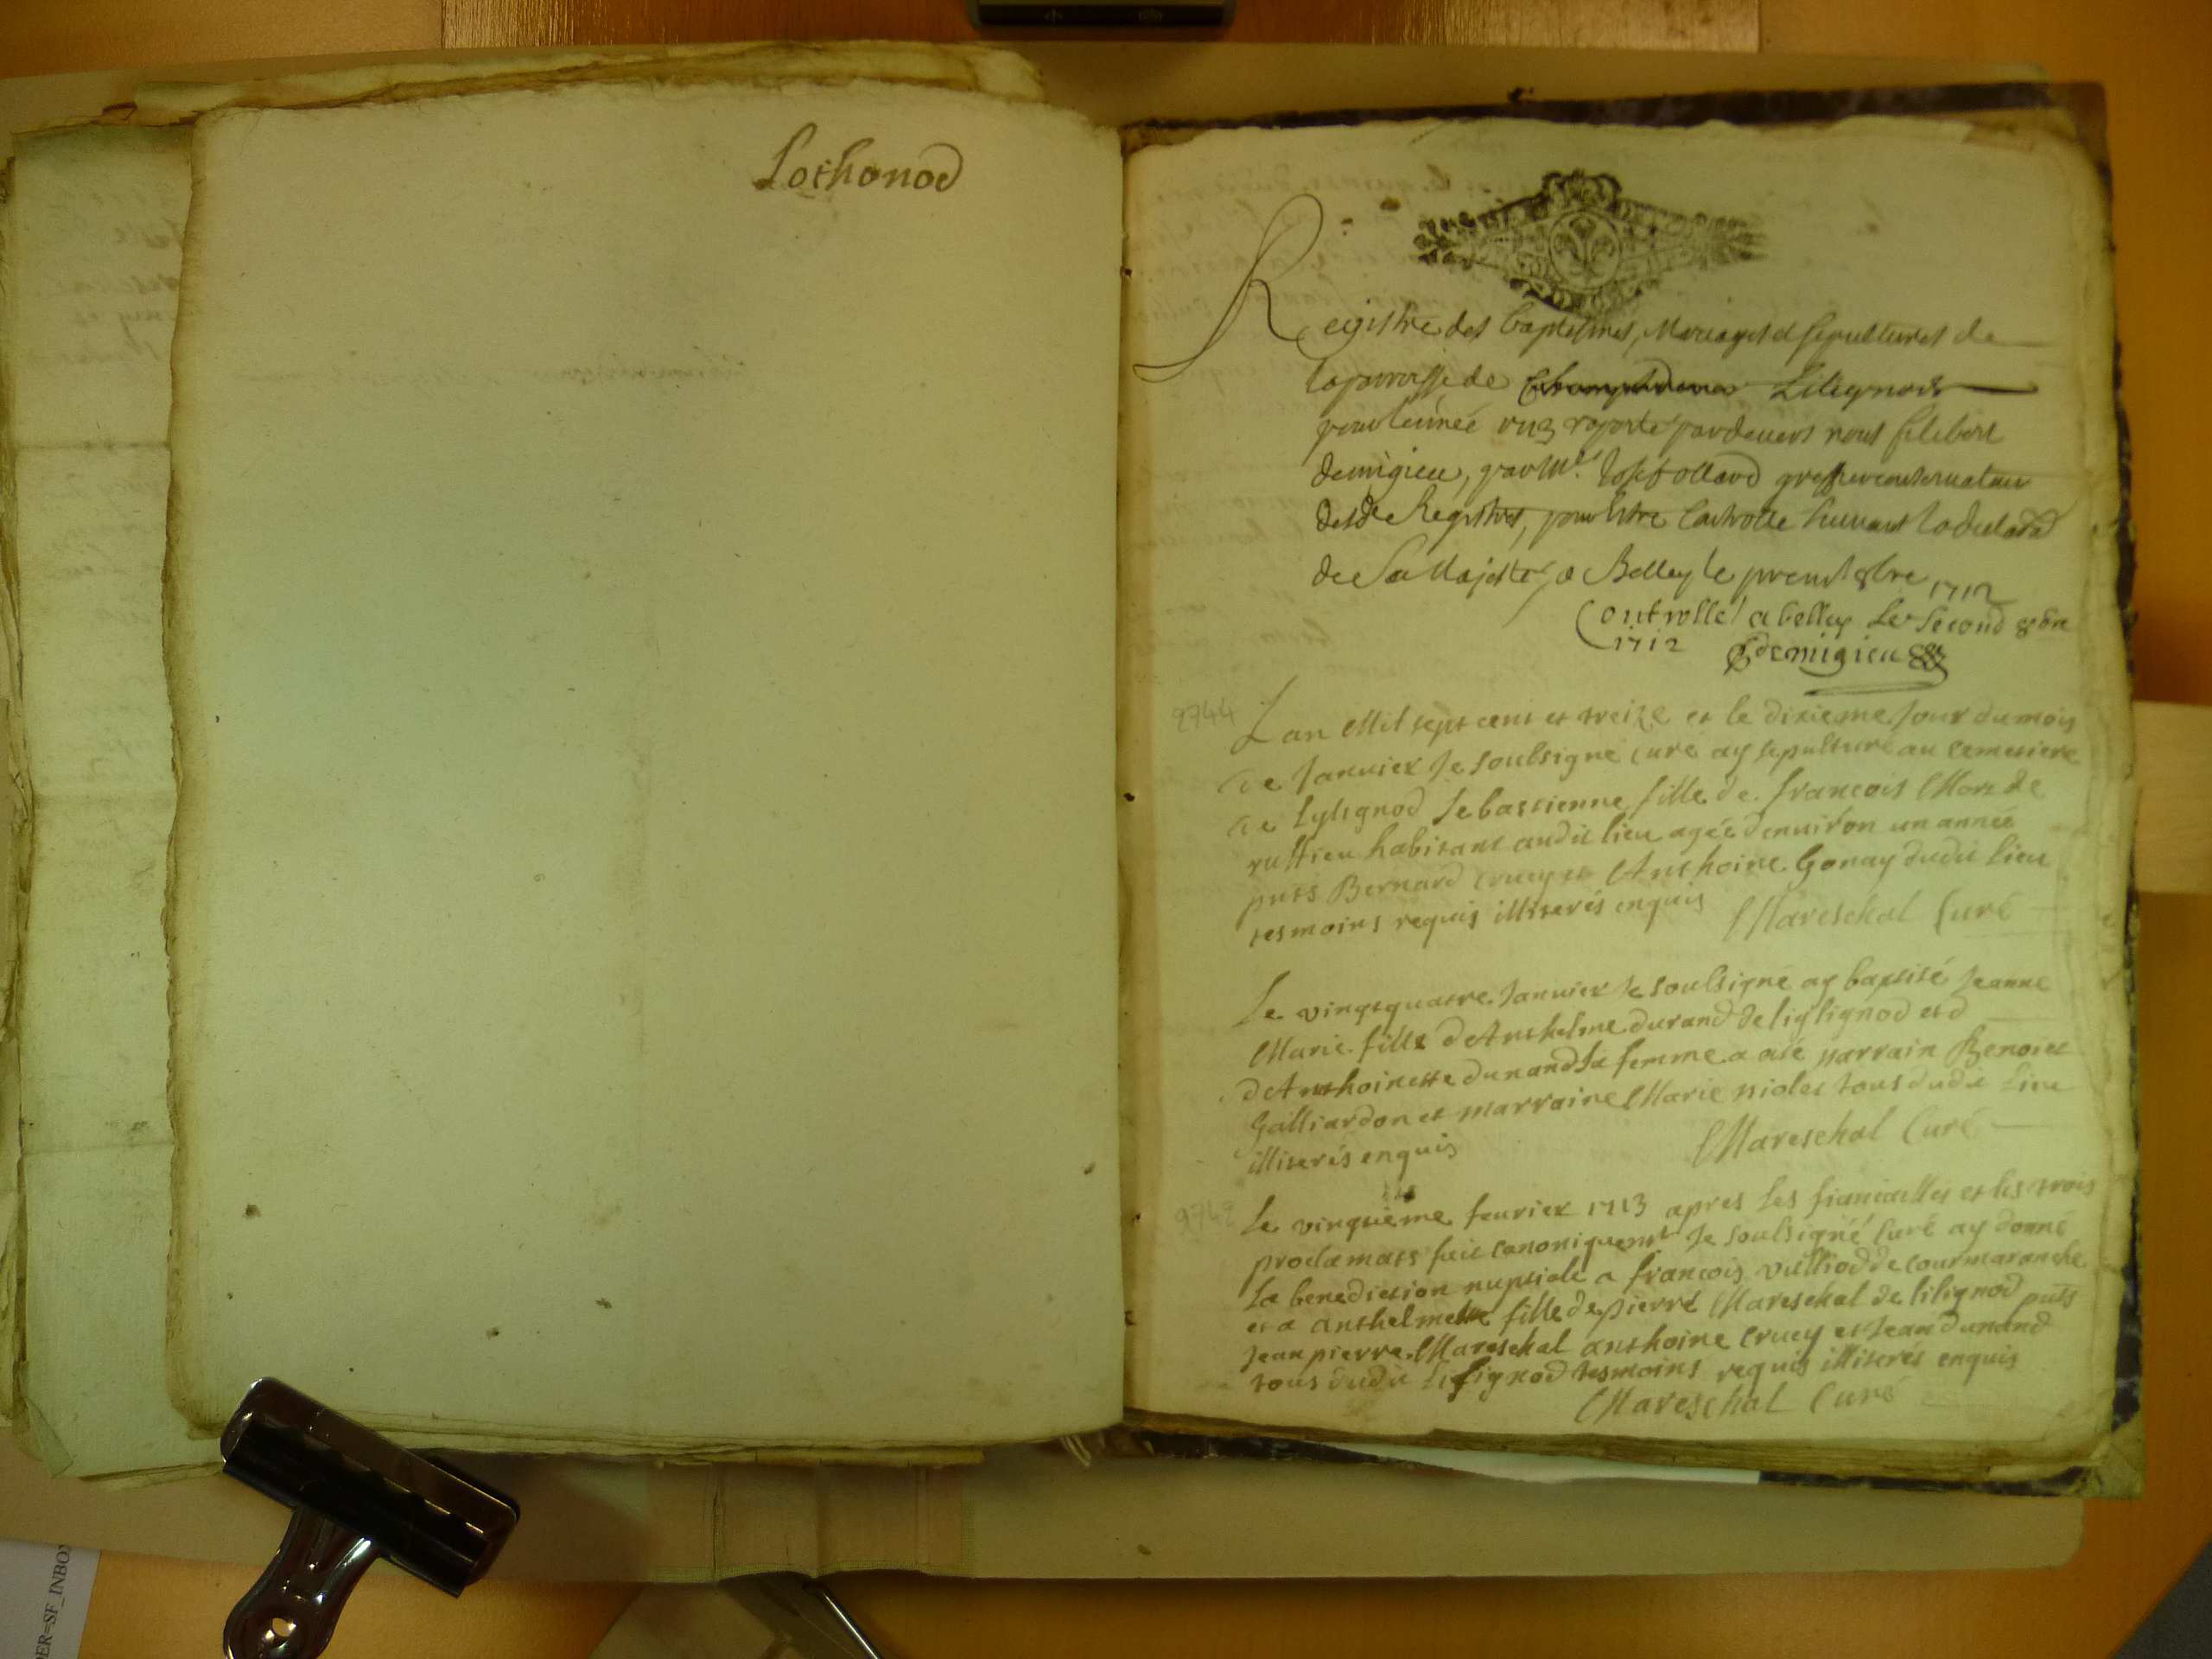 Lochonod
Registre des baptesmes, Mariages et sepultures de
la parroisse de Lilignod
pour l'année 1713 raporté pardevers nous filibert
demigieu, par Mr. Josef ollard greffier conservateur
desd. Registres, pour estre Controlle suivant la declara
de Sa Majesté, a Belley le premier 8bre 1712
Controllé a belley Le Second 8bre
1712 demigieu
2744
L'an Mil sept cent et treize et le dixieme Jour du mois
de Janvier Je soubsigné curé ay sepulturé au cemetiere
de Lylignod Sebastienne fille de francois Mon de
ruffieu habitant audit lieu agée d'environ un année
pnts Bernard cruey et Anthoine Gonay dudit lieu
tesmoins requis illiterés enquis
Mareschal Curé
Le vingtquatre Janvier Je soubsigné ay baptisé Jeanne
Marie fille d'Anthelme durand de liglignod et d
d'Anthoinette dunand sa femme a esté parrain Benoict
Galliardon et marraine Marie niolet tous dudit lieu
illiterés enquis
Mareschal Curé
Le vingtième fevrier 1713 apres les fiancailles et les trois
proclamats fait canoniquemt Je soubsigné Curé ay donné
La benediction nuptiale a francois vuilliod de courmaranche
et a anthelmette fille de pierre Mareschal de lilignod pnts
Jean pierre Mareschal anthoine cruey et Jean dunand
tous dudit lilignod tesmoins requis illiterés enquis
Mareschal Curé
DER=SF_INBOX